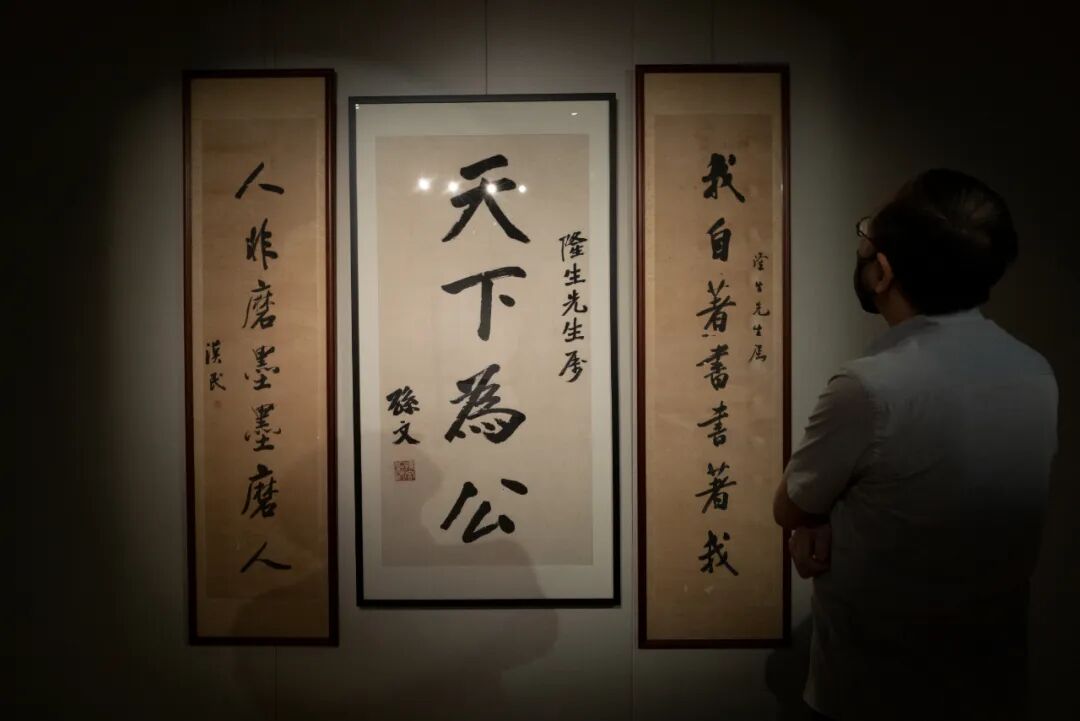 隆生先生属
我自著書書著我
隆生先生属
天下為公
孫文
人非磨墨墨磨人
漢民